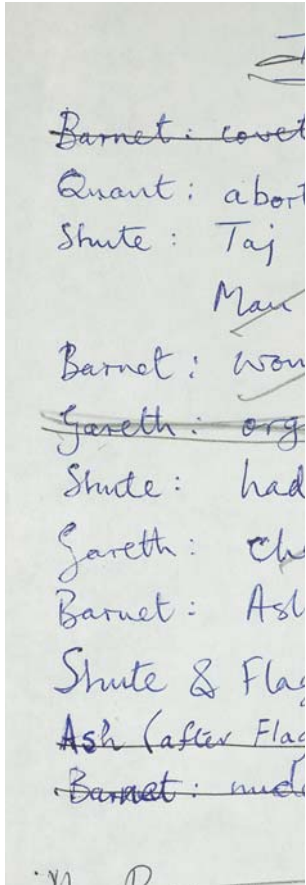 Barnet: covet
Quant: abort
Shute: Taj
Man
Barnet: won
Gareth: org
Shute: had
Gareth: che
Barnet: Ash
Shute & Flag
Ash (after Flag
Barnet: nud